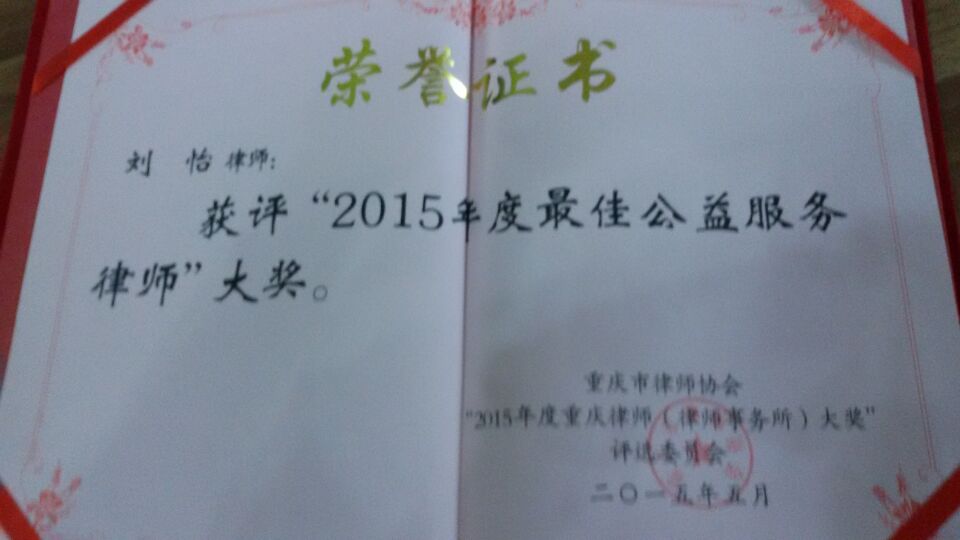 荣誉证书
刘 怡 律师：
获评“2015年度最佳公益服务
律师”大奖。
重庆市律师协会
“2015年度重庆律师（律师事务所）大奖”
评选委员会
二〇一五年五月